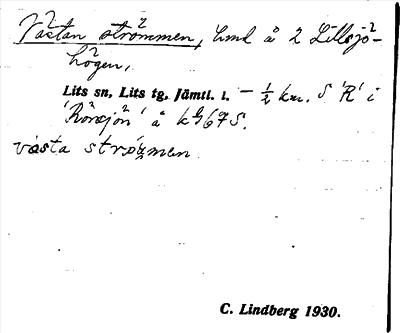 Västan strömmen, hmd å 2 Lillsjö-
högen,
Lits sn, Lits tg, Jämtl. l. — ½ km. S 'R' i
'Rönsjön' å kbl 67 S.
västa strömmen
C. Lindberg 1930.